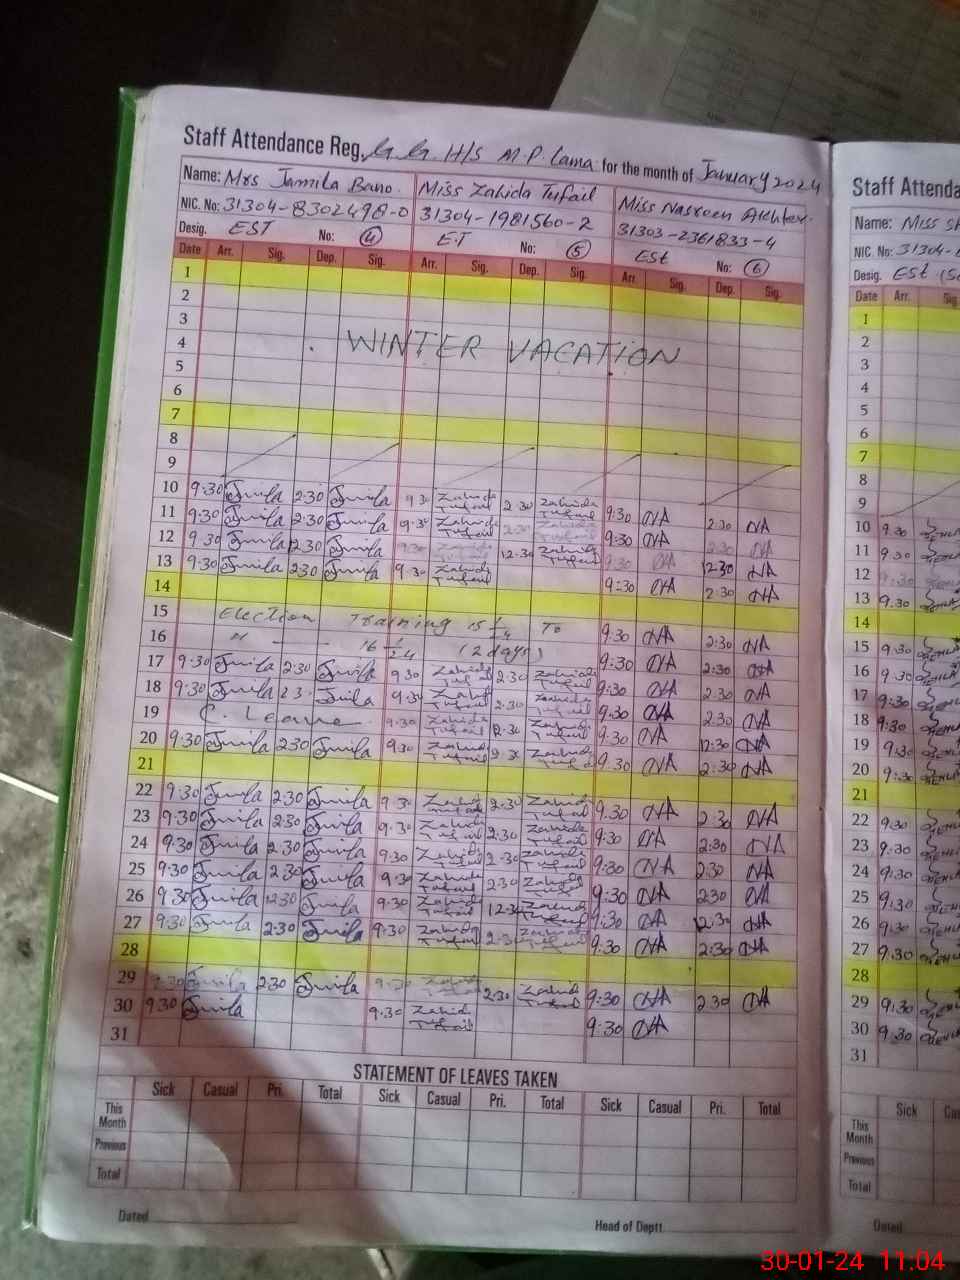 Staff Attendance Reg. G.G. H/S M.P. Lama for the month of January 2024
Name: Mrs Jamila Bano. Miss Zahida Tufail Miss Nasreen Akhter.
NIC. No: 31304-8302498-0 31304-1981560-2 31303-2361833-4
Desig. EST No: 4 E.T No: 5 ESt No: 6
Date Arr. Sig. Dep. Sig. Arr. Sig. Dep. Sig. Arr. Sig. Dep. Sig.
1
2
3
4 WINTER VACATION
5
6
7
8
9
10 9:30 2:30 9:30 Zahida Tufail 2:30 Zahida Tufail 9:30 NA 2:30 NA
11 9:30 2:30 9:30 Zahida Tufail 2:30 Zahida Tufail 9:30 NA 2:30 NA
12 9:30 12:30 9:30 Zahida Tufail 12:30 Zahida Tufail 9:30 NA 12:30 NA
13 9:30 2:30 9:30 Zahida Tufail 9:30 NA 2:30 NA
14
15 Election Training 15 1/24 To 9:30 NA 2:30 NA
16 " 16 1/24 (2 days) 9:30 NA 2:30 NA
17 9:30 2:30 9:30 Zahida Tufail 2:30 Zahida Tufail 9:30 NA 2:30 NA
18 9:30 2:3 9:30 Zahida Tufail 2:30 Zahida Tufail 9:30 NA 2:30 NA
19 C. Leave 9:30 Zahida Tufail 12:30 Zahida Tufail 9:30 NA 12:30 NA
20 9:30 2:30 9:30 Zahida Tufail 2:30 Zahida Tufail 9:30 NA 2:30 NA
21
22 9:30 2:30 9:30 Zahida Tufail 2:30 Zahida Tufail 9:30 NA 2:30 NA
23 9:30 2:30 9:30 Zahida Tufail 2:30 Zahida Tufail 9:30 NA 2:30 NA
24 9:30 2:30 9:30 Zahida Tufail 2:30 Zahida Tufail 9:30 NA 2:30 NA
25 9:30 2:30 9:30 Zahida Tufail 2:30 Zahida Tufail 9:30 NA 2:30 NA
26 9:30 12:30 9:30 Zahida Tufail 12:30 Zahida Tufail 9:30 NA 12:30 NA
27 9:30 2:30 9:30 Zahida Tufail 2:30 Zahida Tufail 9:30 NA 2:30 NA
28
29 9:30 2:30 9:30 Zahida Tufail 2:30 Zahida Tufail 9:30 NA 2:30 NA
30 9:30 9:30 Zahida Tufail 9:30 NA
31
STATEMENT OF LEAVES TAKEN
Sick Casual Pri. Total Sick Casual Pri. Total Sick Casual Pri. Total
This Month
Previous
Total
Dated Head of Deptt.
Staff Attenda
Name: Miss
NIC. No: 31304-
Desig. ESt
Date Arr. Sig
1
2
3
4
5
6
7
8
9
10 9:30
11 9:30
12 9:30
13 9:30
14
15 9:30
16 9:30
17 9:30
18 9:30
19 9:30
20 9:30
21
22 9:30
23 9:30
24 9:30
25 9:30
26 9:30
27 9:30
28
29 9:30
30 9:30
31
Sick
This Month
Previous
Total
Dated
30-01-24 11:04